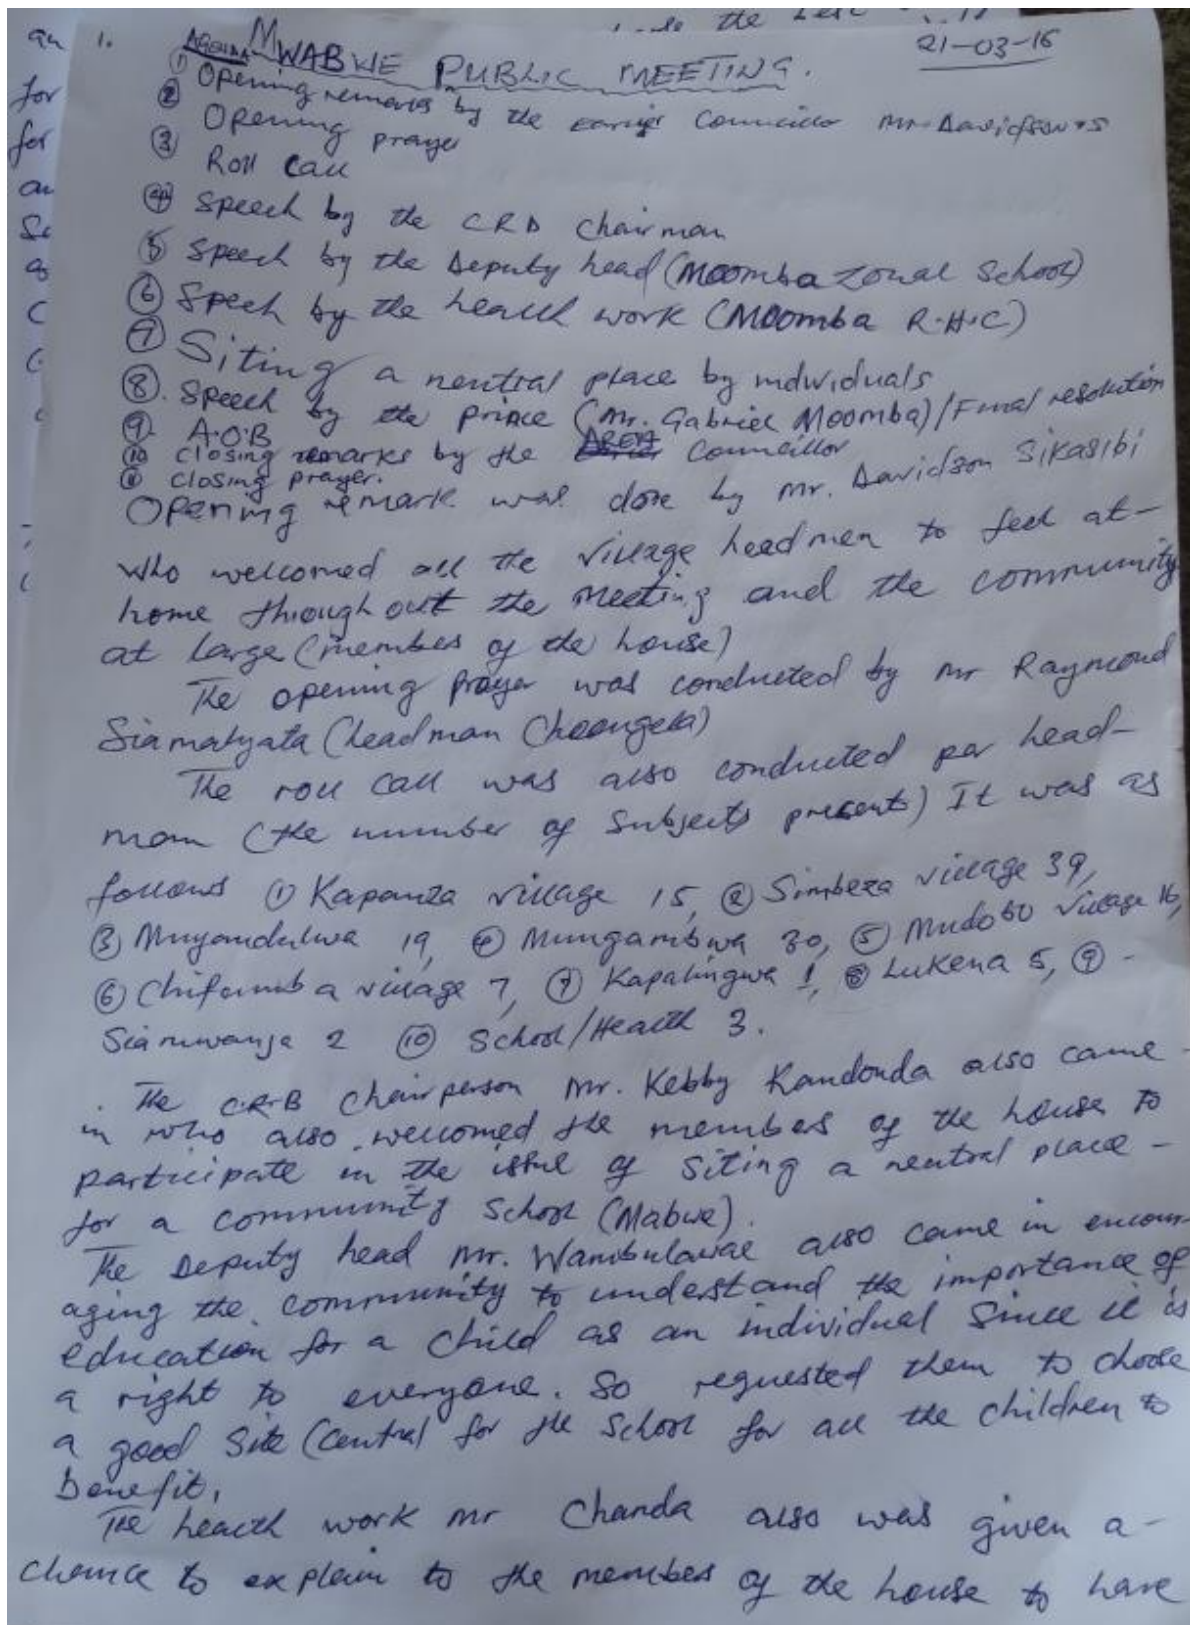 1.
21-03-16
AGENDA MWABWE PUBLIC MEETING.
① Opening remarks by the Councillor Mr. Davidson S
② Opening prayer
③ Roll Call
④ Speech by the CRD Chairman
⑤ Speech by the Deputy head (Moomba Zonal School)
⑥ Speech by the health work (Moomba R.H.C)
⑦ Siting a neutral place by individuals
⑧. Speech by the prince (Mr. Gabriel Moomba)/Final resolution
⑨. A.O.B
⑩ closing remarks by the AREA Councillor
⑪ closing prayer.
Opening remark was done by Mr. Davidson Sikasibi
who welcomed all the village headmen to feel at-
home throughout the meeting and the community
at large (members of the house)
The opening prayer was conducted by Mr Raymond
Siamatyata (headman Choongela)
The roll call was also conducted per head-
man (the number of Subjects presents) It was as
follows ① Kapanza village 15, ② Simbeza village 39,
③ Muyandulwa 19, ④ Mungambwa 30, ⑤ Mudobo village 16,
⑥ Chifumba village 7, ⑦ Kapalingwa 1, ⑧ Lukena 5, ⑨ -
Siamwanja 2 ⑩ School/Health 3.
The C.R.B Chairperson Mr. Kebby Kandonda also came
in who also welcomed the members of the house to
participate in the issue of siting a neutral place -
for a community School (Mabwe).
The Deputy head Mr. Wambulawae also came in encour-
aging the community to understand the importance of
education for a child as an individual Since it is
a right to everyone. So requested them to choose
a good site (central for the School for all the children to
benefit,
The health work Mr Chanda also was given a-
chance to explain to the members of the house to have